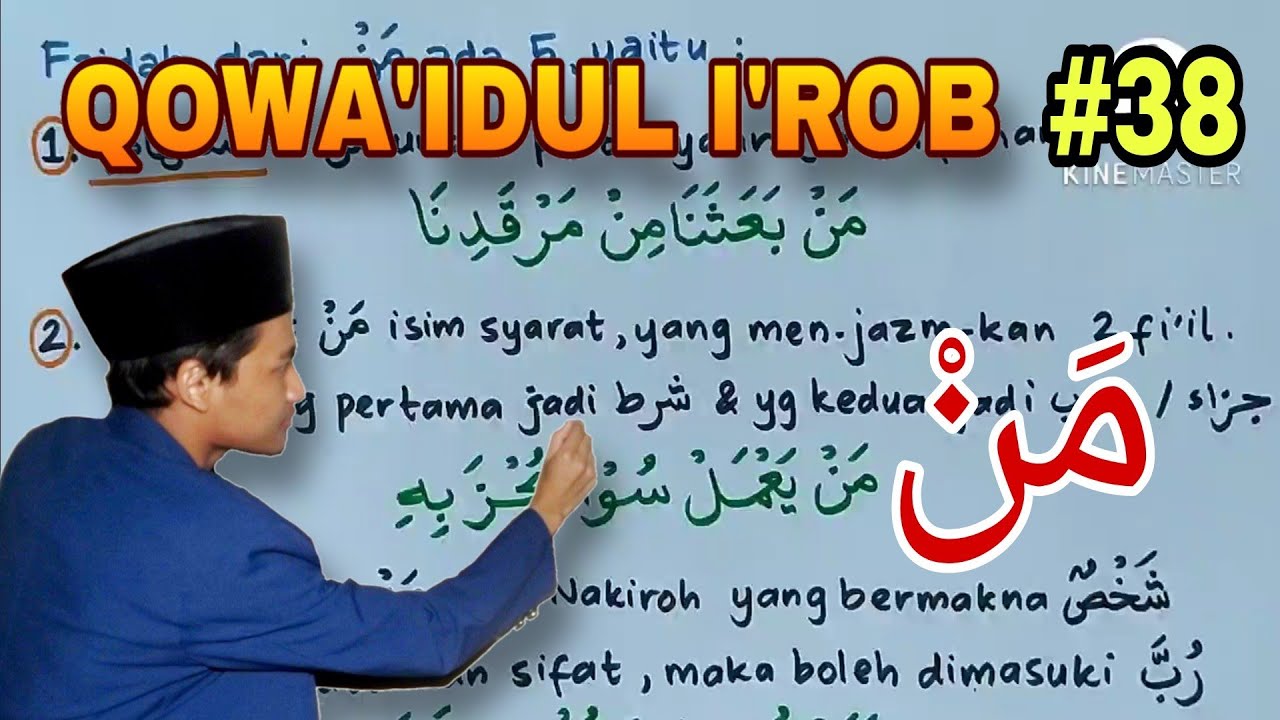 QOWA'IDUL I'ROB #38
Faidah dari مَنْ ada 5, yaitu :
1.
KINEMASTER
مَنْ بَعَثَنَا مِنْ مَرْقَدِنَا
2. مَنْ isim syarat, yang men-jazm-kan 2 fi'il.
pertama jadi شرط & yg kedua jadi / جزاء
مَنْ
مَنْ يَعْمَلْ سُوْءًا يُجْزَ بِهِ
Nakiroh yang bermakna شَخْصٌ
sifat, maka boleh dimasuki رُبَّ